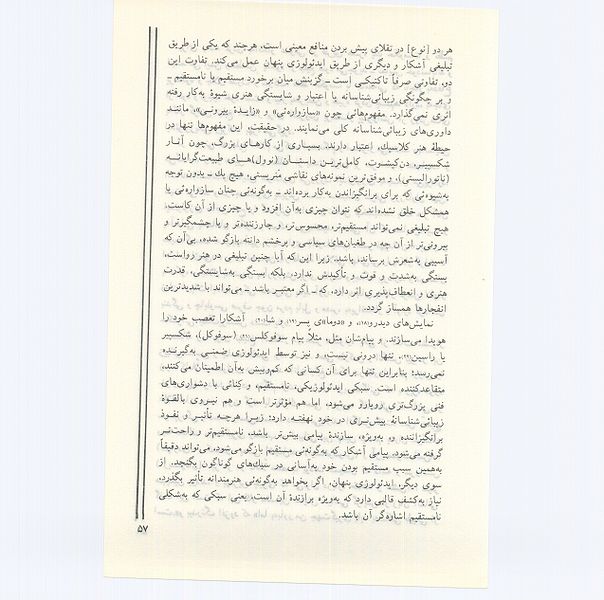 هر دو [نوع] در تقلای پیش بردن منافع معینی است، هرچند که یکی از طریق
تبلیغی آشکار و دیگری از طریق ایدئولوژی پنهان عمل می‌کند. تفاوت این
دو، تفاوتی صرفاً تاکتیکی است ـ گزینش میان برخورد مستقیم یا نامستقیم ـ
و بر چگونگی زیبائی‌شناسانه یا اعتبار و شایستگی هنری شیوهٔ به‌کار رفته
اثری نمی‌گذارد. مفهوم‌هائی چون «سازواره‌ئی» و «زایدهٔ بیرونی»، مانند
داوری‌های زیبائی‌شناسانه کلی می‌نمایند. در حقیقت، این مفهوم‌ها تنها در
حیطهٔ هنر کلاسیك، اعتبار دارند. بسیاری از کارهای بزرگ، چون آثار
شکسپیر، دن‌کیشوت، کامل‌ترین داستان (نوول)های طبیعت‌گرایانه
(ناتورالیستی)، و موفق‌ترین نمونه‌های نقاشی منریستی، هیچ یك ـ بدون توجه
به‌شیوه‌ئی که برای برانگیزاندن به‌کار برده‌اند ـ به‌گونه‌ئی چنان سازواره‌ئی یا
همشکل خلق نشده‌اند که نتوان چیزی به‌آن افزود و یا چیزی از آن کاست.
هیچ تبلیغی نمی‌تواند مستقیم‌تر، محسوس‌تر، و چارزننده‌تر و یا چشمگیرتر و
بیرونی‌تر از آن چه در طغیان‌های سیاسی و پرخشم دانته بازگو شده، بی‌آن که
آسیبی به‌شعرش برساند، باشد. زیرا این که آیا چنین تبلیغی در هنر رواست،
بستگی به‌شدت و قوت و تأکیدش ندارد، بلکه بستگی به‌شایستگی، قدرت
هنری و انعطاف‌پذیریِ اثر دارد، که ـ اگر معتبر باشد ـ می‌تواند با شدیدترین
انفجارها همساز گردد.
نمایش‌های دیدرو، و «دوما»ی پسر و شا، آشکارا تعصب خود را
هویدا می‌سازند. و پیام‌شان مثل، مثلاً پیام سوفوکلس (سوفوکل)، شکسپیر
یا راسین، تنها درونی نیست، و نیز توسط ایدئولوژی ضمنی به‌گیرنده
نمی‌رسد؛ بنابراین تنها برای آن کسانی که کم‌وبیش به‌آن اطمینان می‌کنند،
متقاعدکننده است. سبکی ایدئولوژیکی، نامستقیم، و کنائی با دشواری‌های
فنی بزرگ‌تری رویارو می‌شود، اما هم مؤثرتر است و هم نیروی بالقوهٔ
زیبائی‌شناسانهٔ بیش‌تری در خود نهفته دارد؛ زیرا هرچه تأثیر و نفوذ
برانگیزاننده و، به‌ویژه، سازندهٔ پیامی بیش‌تر باشد، نامستقیم‌تر و راحت‌تر
گرفته می‌شود. پیامی آشکار که به‌گونه‌ئی مستقیم بازگو می‌شود، می‌تواند دقیقاً
به‌همین سبب مستقیم بودن خود به‌آسانی در سبك‌های گوناگون بگنجد. از
سوی دیگر، ایدئولوژی پنهان، اگر بخواهد به‌گونه‌ئی هنرمندانه تأثیر بگذارد،
نیاز به‌کشف قالبی دارد که به‌ویژه برازندهٔ آن است، یعنی سبکی که به‌شکلی
نامستقیم اشاره‌گر آن باشد.
۵۷